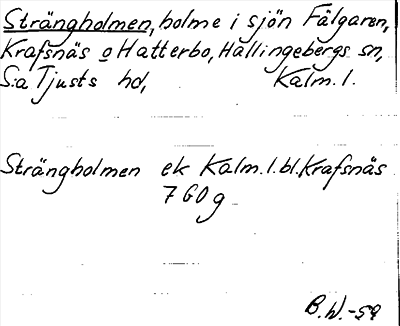 Strängholmen, holme i sjön Fälgaren,
Krafsnäs o Hatterbo, Hallingebergs sn,
S:a Tjusts hd, Kalm. l.
Strängholmen ek Kalm.l.bl. Krafsnäs
7 G0 g
B.W.-59